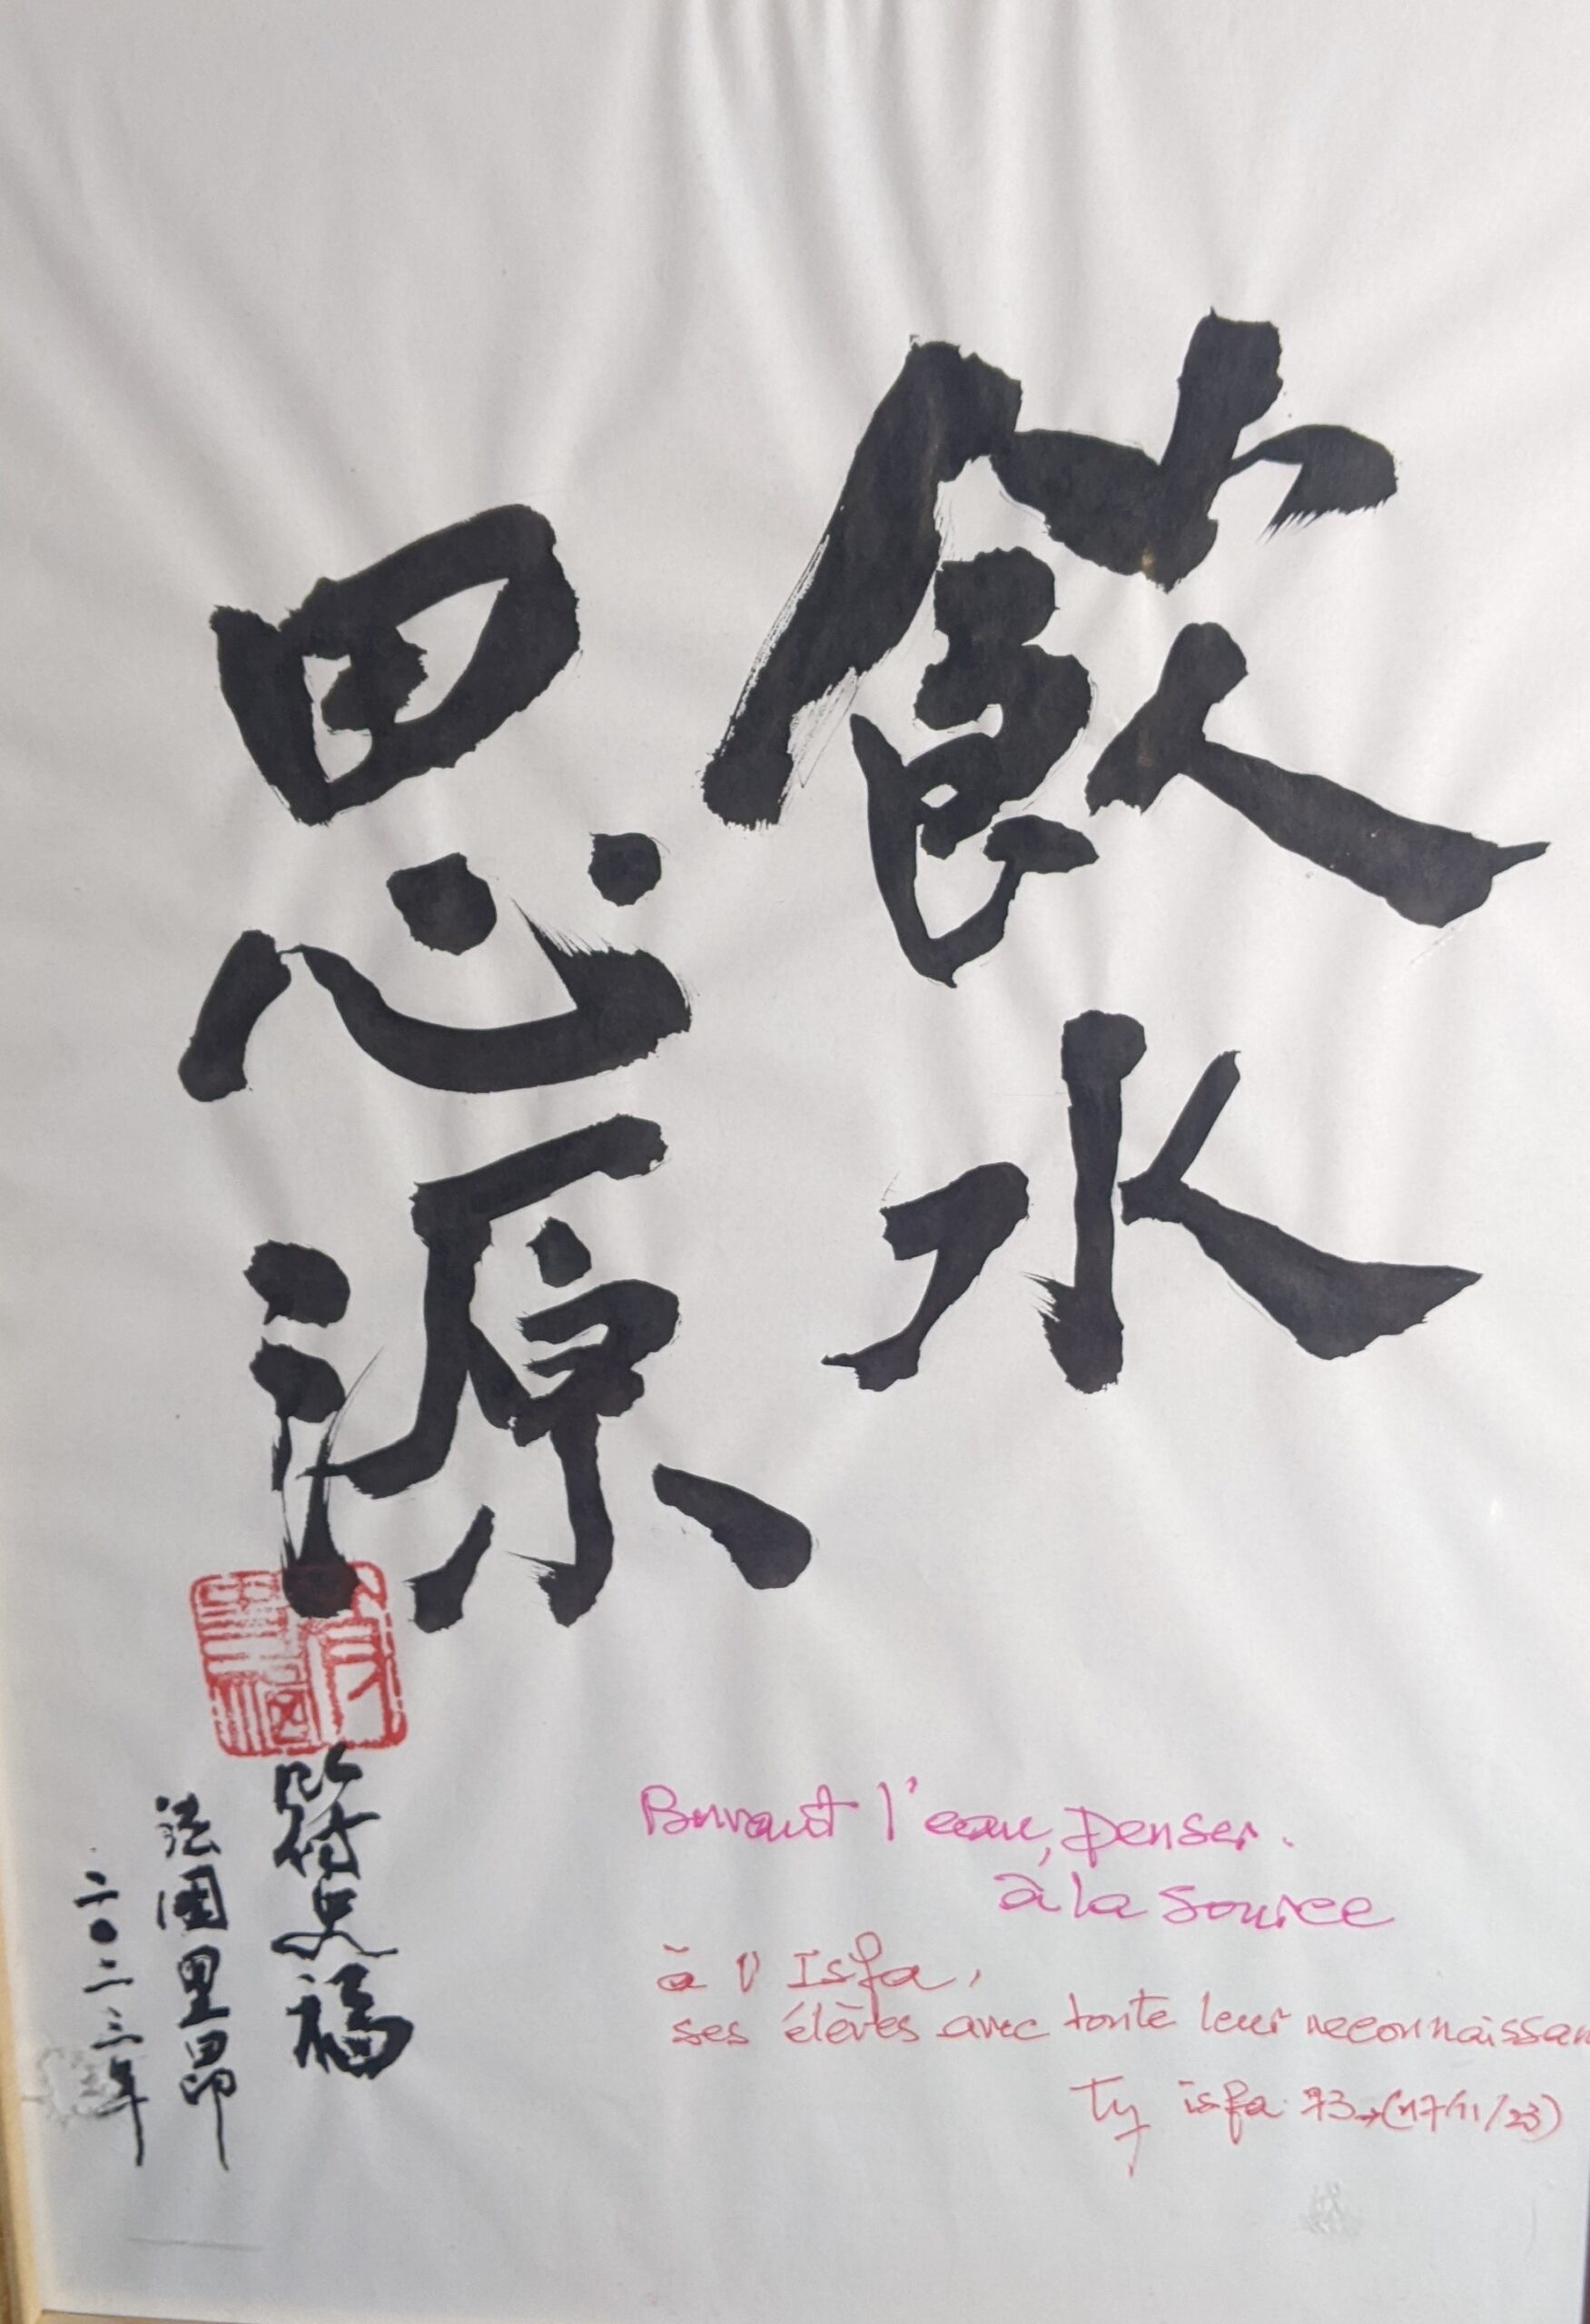 飲水
思源
符史福
法國里昂
二〇二三年
Buvant l'eau, penser
à la source
à l'Isfa,
ses élèves avec toute leur reconnaissan
Ty isfa 73→(17/11/23)